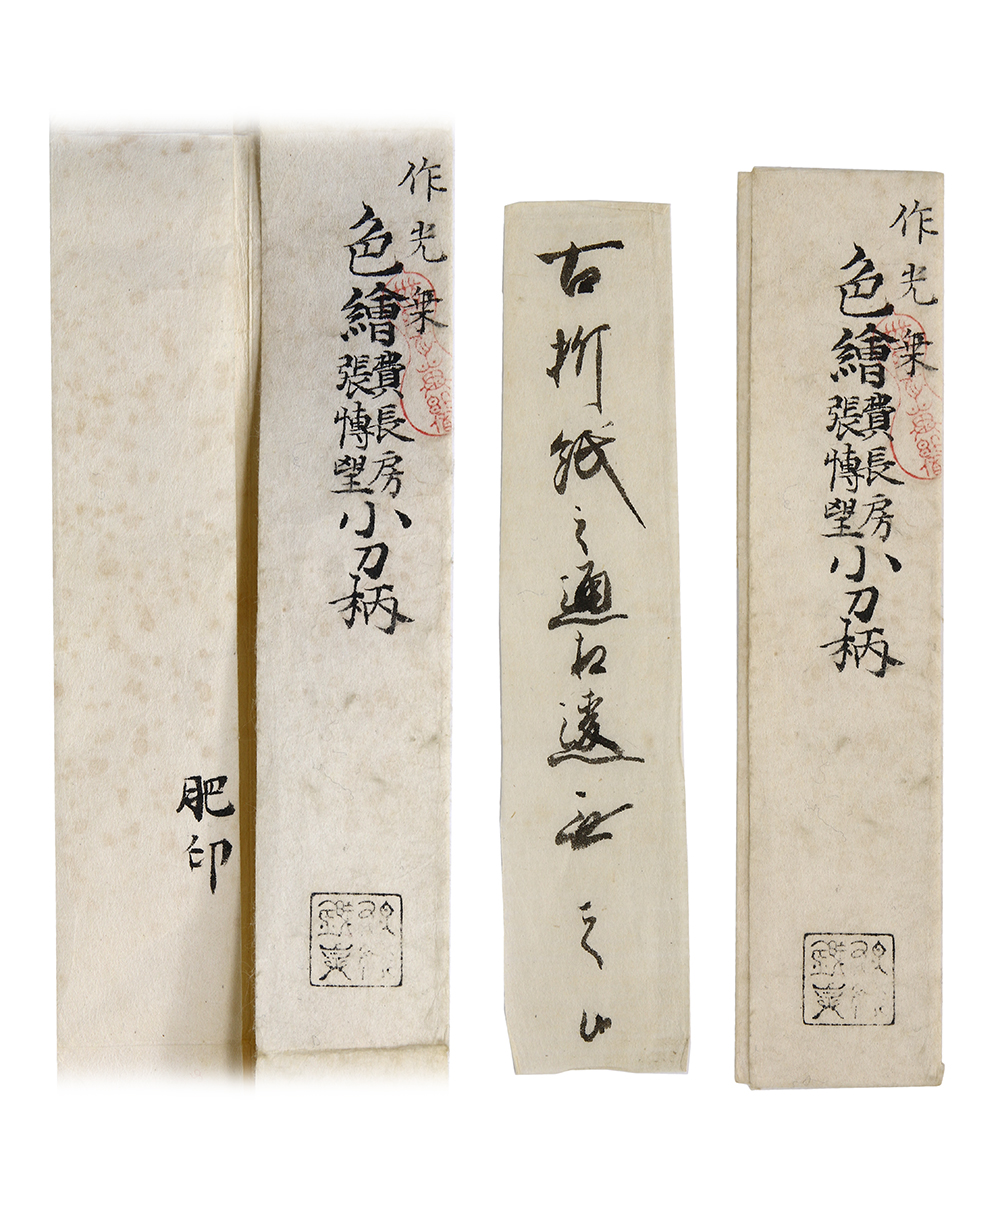 作光乗
色繪
費長房
張博望
小刀柄
古折紙之通相違無之
作光乗
色繪
費長房
張博望
小刀柄
肥印